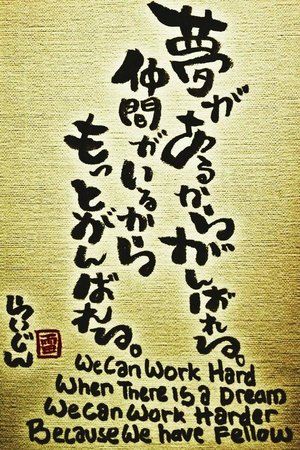 夢があるからがんばれる。
仲間がいるから
もっとがんばれる。
らいじん
雷
We Can Work Hard
When There is a Dream
We Can Work Harder
Because We have Fellow